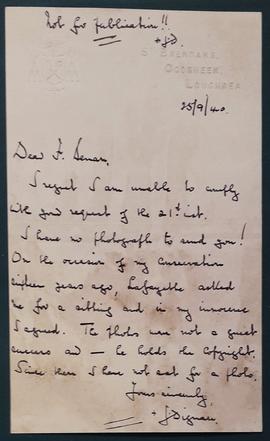 Not for Publication!!
+JD.
St. Brendans,
Coorheen,
Loughrea
25/9/40.
Dear F. Senan,
I regret I am unable to comply
with your request of the 21st inst.
I have no photograph to send you!
On the occasion of my Consecration
sixteen years ago, Lafayette asked
me for a sitting and in my innocence
I agreed. The photos were not a great
success and — he holds the Copyright.
Since then I have not sat for a photo.
Yours sincerely,
+ J Dignan.